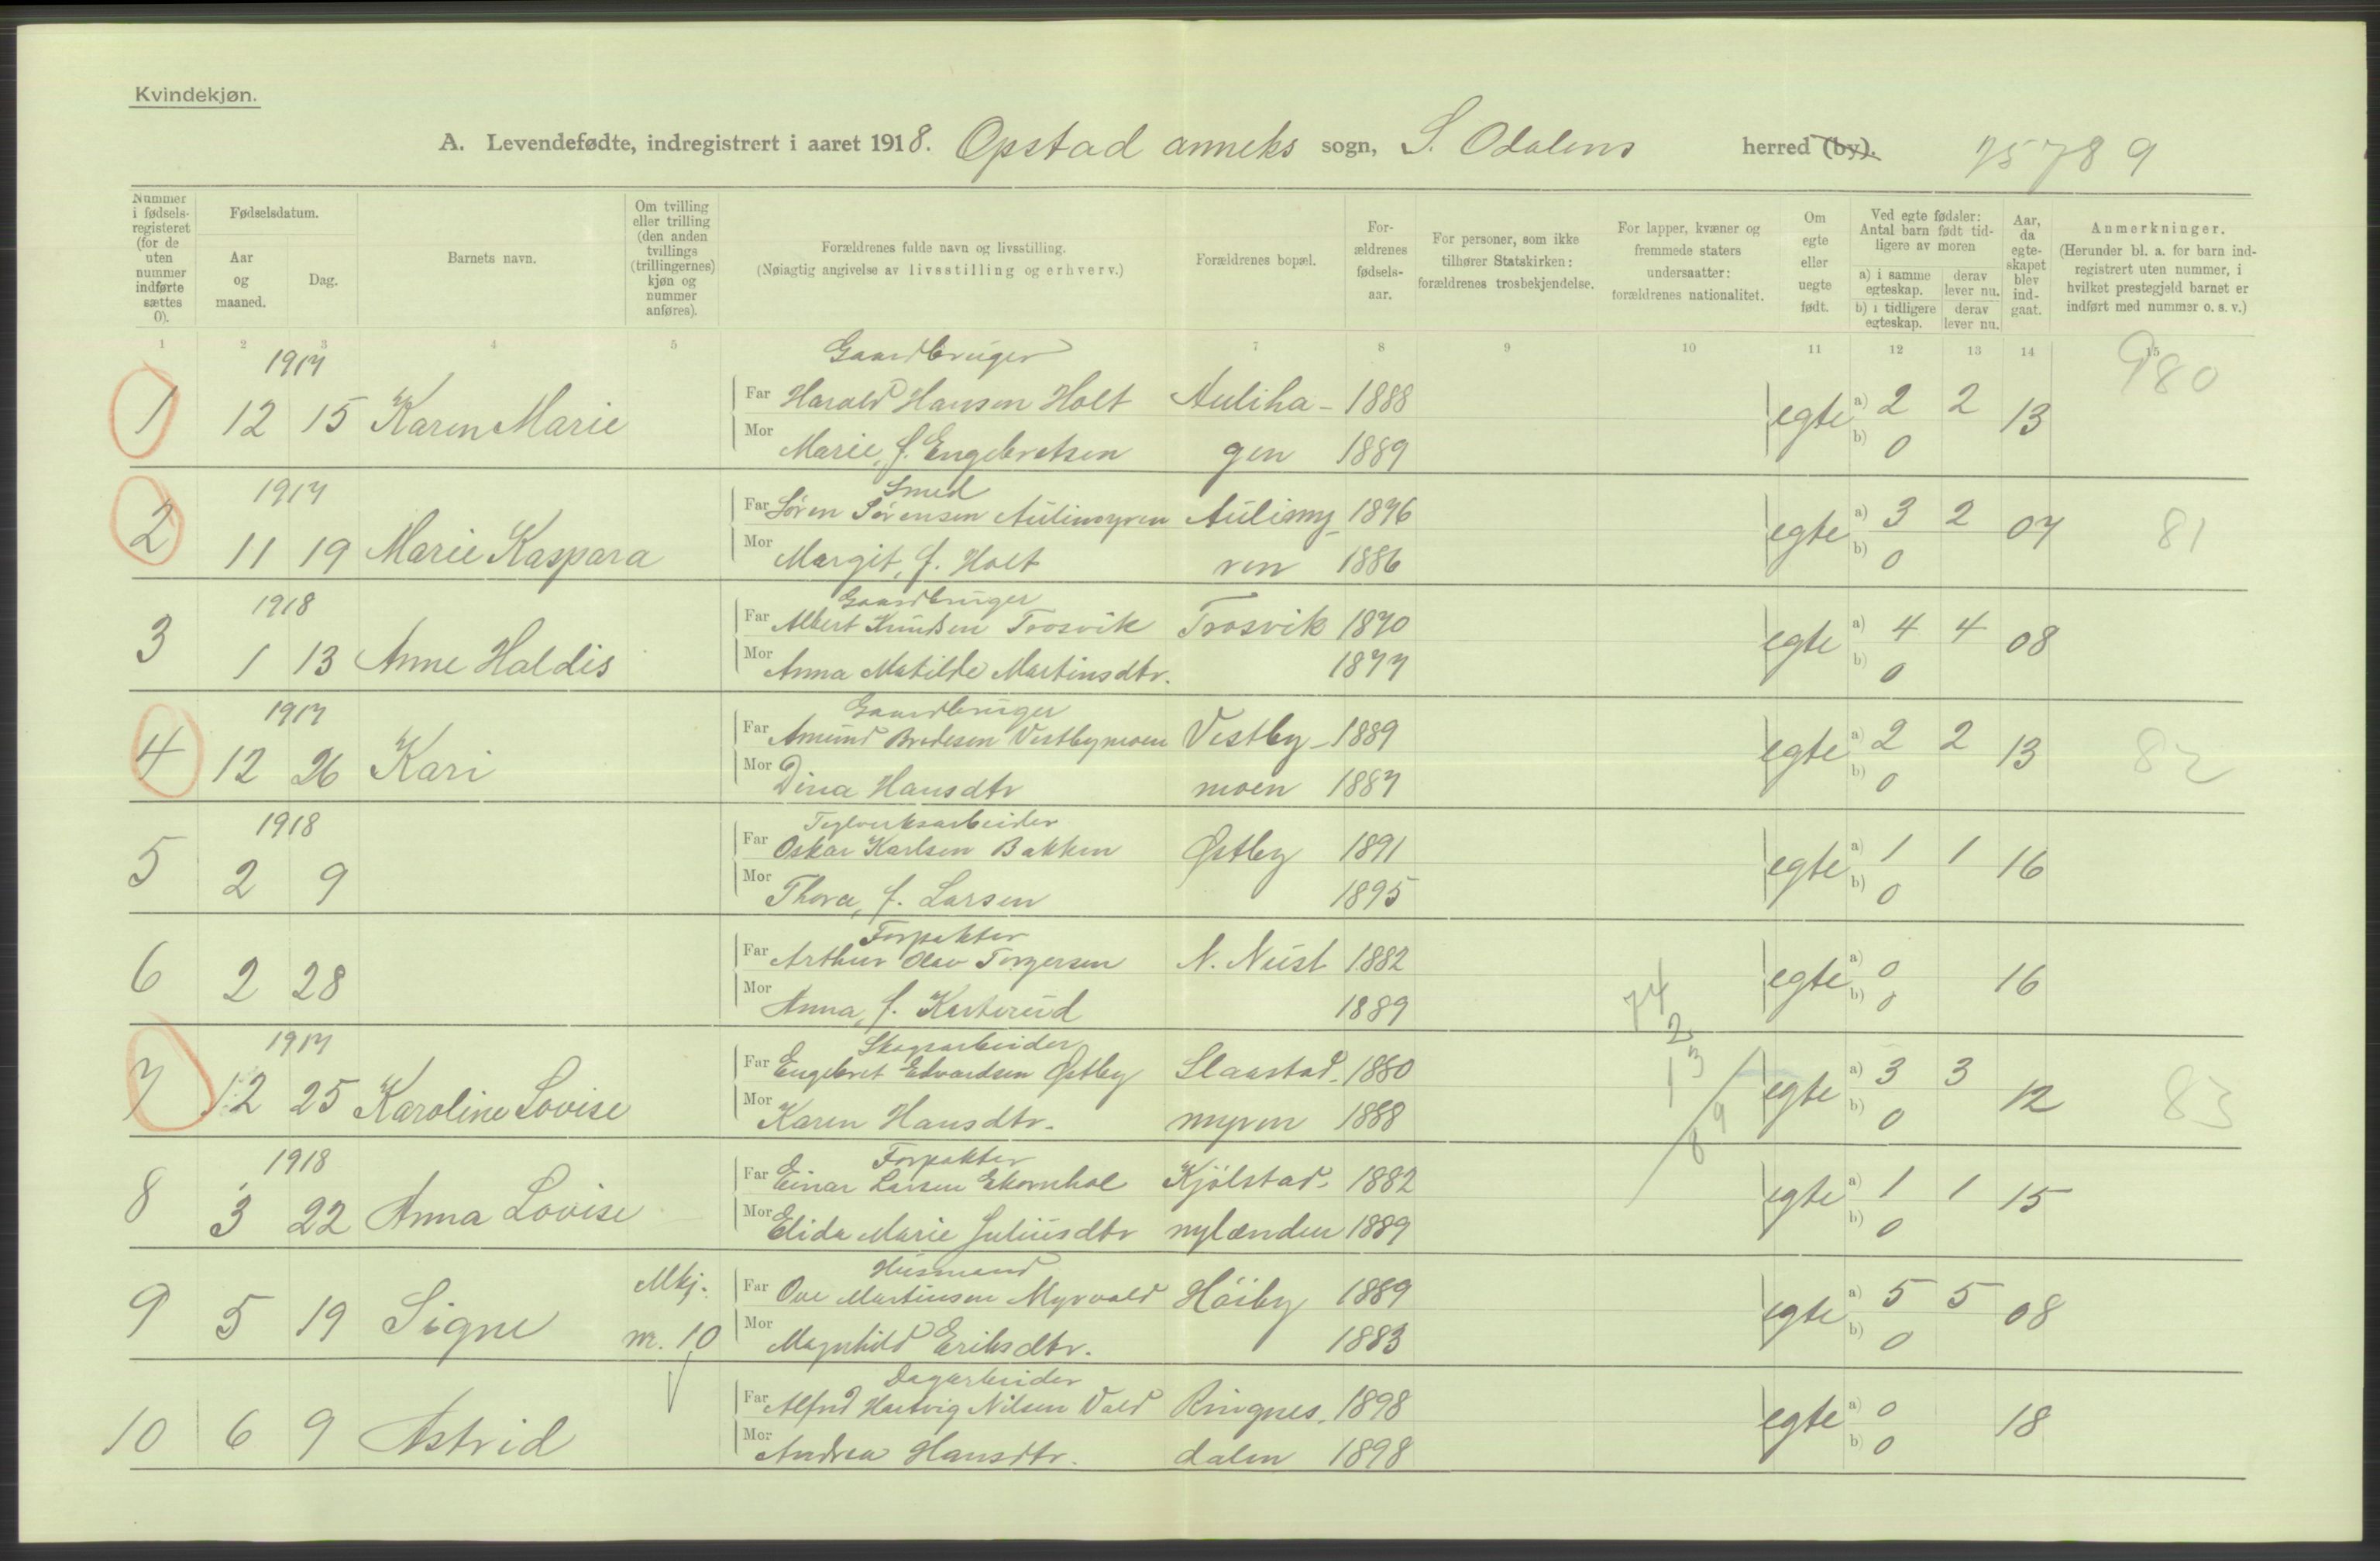 Kvindekjøn.
A. Levendefødte, indregistrert i aaret 1918. Opstad anneks sogn, S. Odalens herred (by). 75 78 9
Nummer i fødsels-registeret (for de uten nummer indførte sættes 0).
Fødselsdatum.
Aar og maaned.
Dag.
Barnets navn.
Om tvilling eller trilling (den anden tvillings (trillingernes) kjøn og nummer anføres).
Forældrenes fulde navn og livsstilling.
(Nøiagtig angivelse av livsstilling og erhverv.)
Forældrenes bopæl.
For-ældrenes fødsels-aar.
For personer, som ikke tilhører Statskirken: forældrenes trosbekjendelse.
For lapper, kvæner og fremmede staters undersaatter: forældrenes nationalitet.
Om egte eller uegte født.
Ved egte fødsler: Antal barn født tid-ligere av moren
a) i samme egteskap. derav lever nu.
b) i tidligere egteskap. derav lever nu.
Aar, da egte-skapet blev ind-gaat.
Anmerkninger.
(Herunder bl. a. for barn ind-registrert uten nummer, i hvilket prestegjeld barnet er indført med nummer o. s. v.)
1 2 3 4 5 7 8 9 10 11 12 13 14 15
1917 Gaardbruger 980
1 12 15 Karen Marie Far Harald Hansen Holt Auliha- 1888 egte a) 2 2 13
Mor Marie, f. Engebretsen gen 1889 b) 0
1917 Smed
2 11 19 Marie Kaspara Far Søren Sørensen Aulimyren Aulimy- 1876 egte a) 3 2 07 81
Mor Margit, f. Holt ren 1886 b) 0
1918 Gaardbruger
3 1 13 Anne Haldis Far Albert Knudsen Trosvik Trosvik 1870 egte a) 4 4 08
Mor Anna Matilde Martinsdtr. 1877 b) 0
1917 Gaardbruger
4 12 26 Kari Far Amund Bredesen Vestbymoen Vestby- 1889 egte a) 2 2 13 82
Mor Dina Hansdtr moen 1887 b) 0
1918 Teglverksarbeider
5 2 9 Far Oskar Karlsen Bakken Østby 1891 egte a) 1 1 16
Mor Thora, f. Larsen 1895 b) 0
Forpakter
6 2 28 Far Arthur Olav Torgersen N. Nust 1882 egte a) 0 16
Mor Anna, f. Karterud 1889 b) 0
74
2
13
89
1917 Skogsarbeider
7 12 25 Karoline Lovise Far Engebret Edvardsen Østby Slaastad- 1880 egte a) 3 3 12 83
Mor Karen Hansdtr. myren 1888 b) 0
1918 Forpakter
8 3 22 Anna Lovise Far Einar Larsen Ekornhol Kjølstad- 1882 egte a) 1 1 15
Mor Elida Marie Juliusdtr nylænden 1889 b) 0
Husmand
9 5 19 Signe Mkj. nr. 10 Far Ove Martinsen Myrvold Høiby 1889 egte a) 5 5 08
Mor Magnhild Eriksdtr. 1883 b) 0
Dagarbeider
10 6 9 Astrid Far Alfred Hartvig Nilsen Vold Ringnes- 1898 egte a) 0 18
Mor Andrea Hansdtr. dalen 1898 b) 0